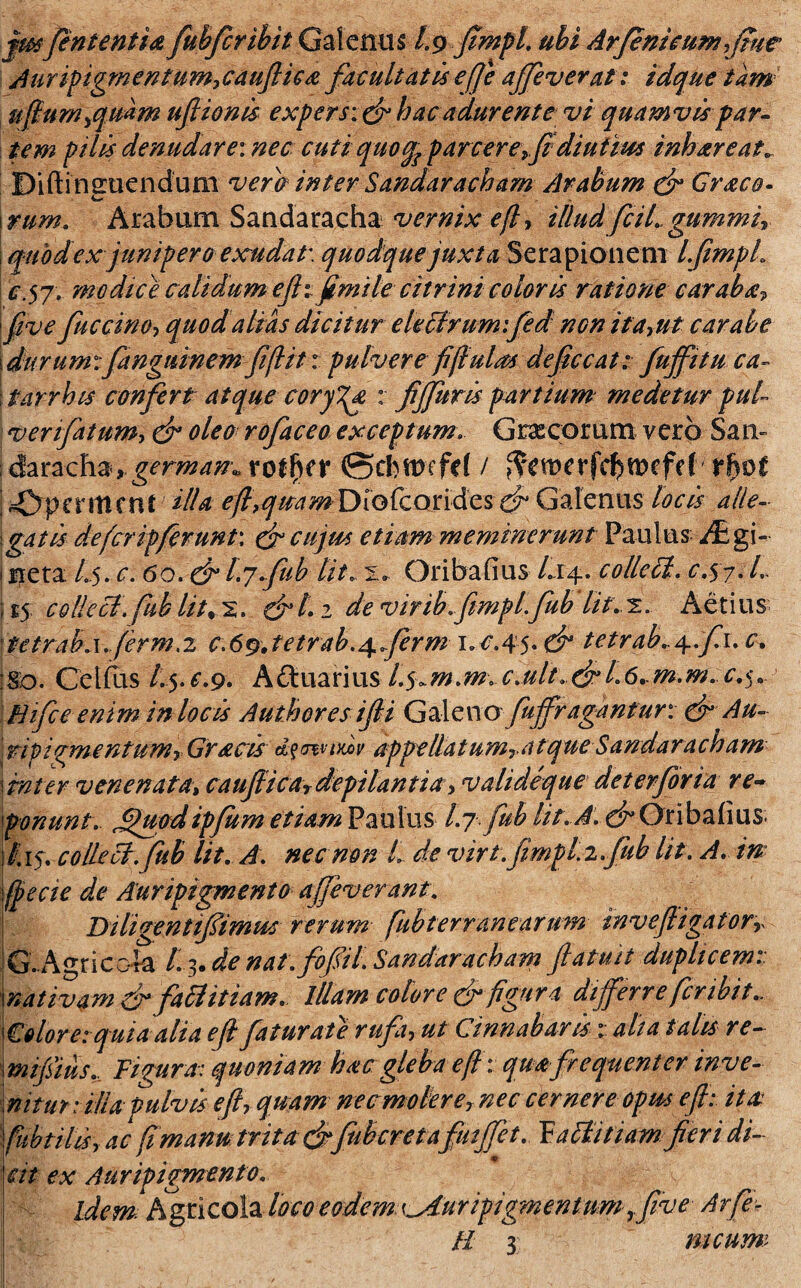 jus sententiæ subscribit Galenus l.9 simpl. ubi Arsenicum, sive
Auripigmentum, causticæ facultatis esse asseverat: idque tàm
ustum, quàm ustionis expers: & hac adurente vi quamvis par-
tem pilis denudare: nec cuti quoq; parcere, si diutius inhæreat.
Distinguendum verò inter Sandaracham Arabum & Græco-
rum. Arabum Sandaracha vernix est, illud scil. gummi,
quod ex junipero exudat: quodque juxta Serapionem l. simpl.
c.57. modicè calidum est: simile citrini coloris ratione carabæ,
sive succino, quod aliàs dicitur electrum: sed non ita, ut carabe
durum: sanguinem sistit: pulvere fistulas desiccat: suffitu ca-
tarrhis confert atque coryzæ : fissuris partium medetur pul-
verisatum, & oleo rosaceo exceptum. Græcorum verò San-
daracha, german. rother Schwefel / Fewerschwefel rhot
Operment illa est, quam Dioscorides & Galenus locis alle-
gatis descripserunt: & cujus etiam meminerunt Paulus Ægi-
neta l.5. c. 60. & l.7. sub lit. z. Oribasius l.14. collect. c.57. l.
15 collect. sub lit. z. & l. 2 de virib. simpl. sub lit. z. Aëtius
tetrab.1. serm.2 c.69. tetrab.4. serm 1. c.45. & tetrab. 4. s.1. c.
80. Celsus l.5. c.9. Actuarius l.5. m.m. c.ult. & l.6. m.m. c.5.
Hisce enim in locis Authores isti Galeno suffragantur: & Au-
ripigmentum, Græcis ἀρσενικὸν appellatum, atque Sandaracham
inter venenata, caustica, depilantia, validéque detersoria re-
ponunt. Quod ipsum etiam Paulus l.7 sub lit. A. & Oribasius
l.15. collect. sub lit. A. nec non l. de virt. simpl.2. sub lit. A. in
specie de Auripigmento asseverant.
Diligentissimus rerum subterranearum investigator,
G. Agricola l. 3. de nat. fossil. Sandaracham statuit duplicem:
nativam & factitiam. Illam colore & figura differre scribit.
Colore: quia alia est saturatè rufa, ut Cinnabaris: alia talis re-
missius. Figura: quoniam hæc gleba est: quæ frequenter inve-
nitur: illa pulvis est, quam nec molere, nec cernere opus est: ita
subtilis, ac si manu trita & subcreta fuisset. Factitiam fieri di-
cit ex Auripigmento.
Idem Agricola loco eodem Auripigmentum, sive Arse-
H 3 nicum